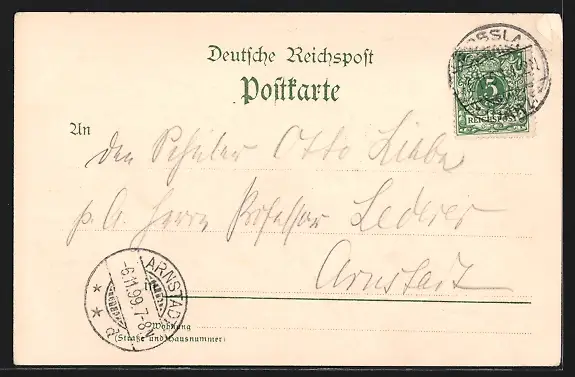 Deutsche Reichspost
Postkarte
ROSSLA
5
REICHSPOST
An
den Schüler Otto Liebe
p. A. Herrn Professor Lederer
Arnstadt
in
ARNSTADT
-6.11.99.7-8V.
* *
Wohnung
(Straße und Hausnummer)